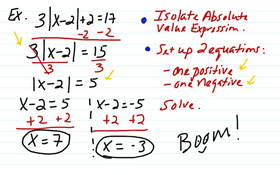 Ex. 3|x-2|+2=17
-2 -2
3|x-2| = 15
3 3
|x-2| = 5
x-2=5 x-2=-5
+2 +2 +2 +2
x=7 x=-3
• Isolate Absolute
Value Expression.
• Set up 2 equations:
- one positive
- one negative
Solve.
Boom!